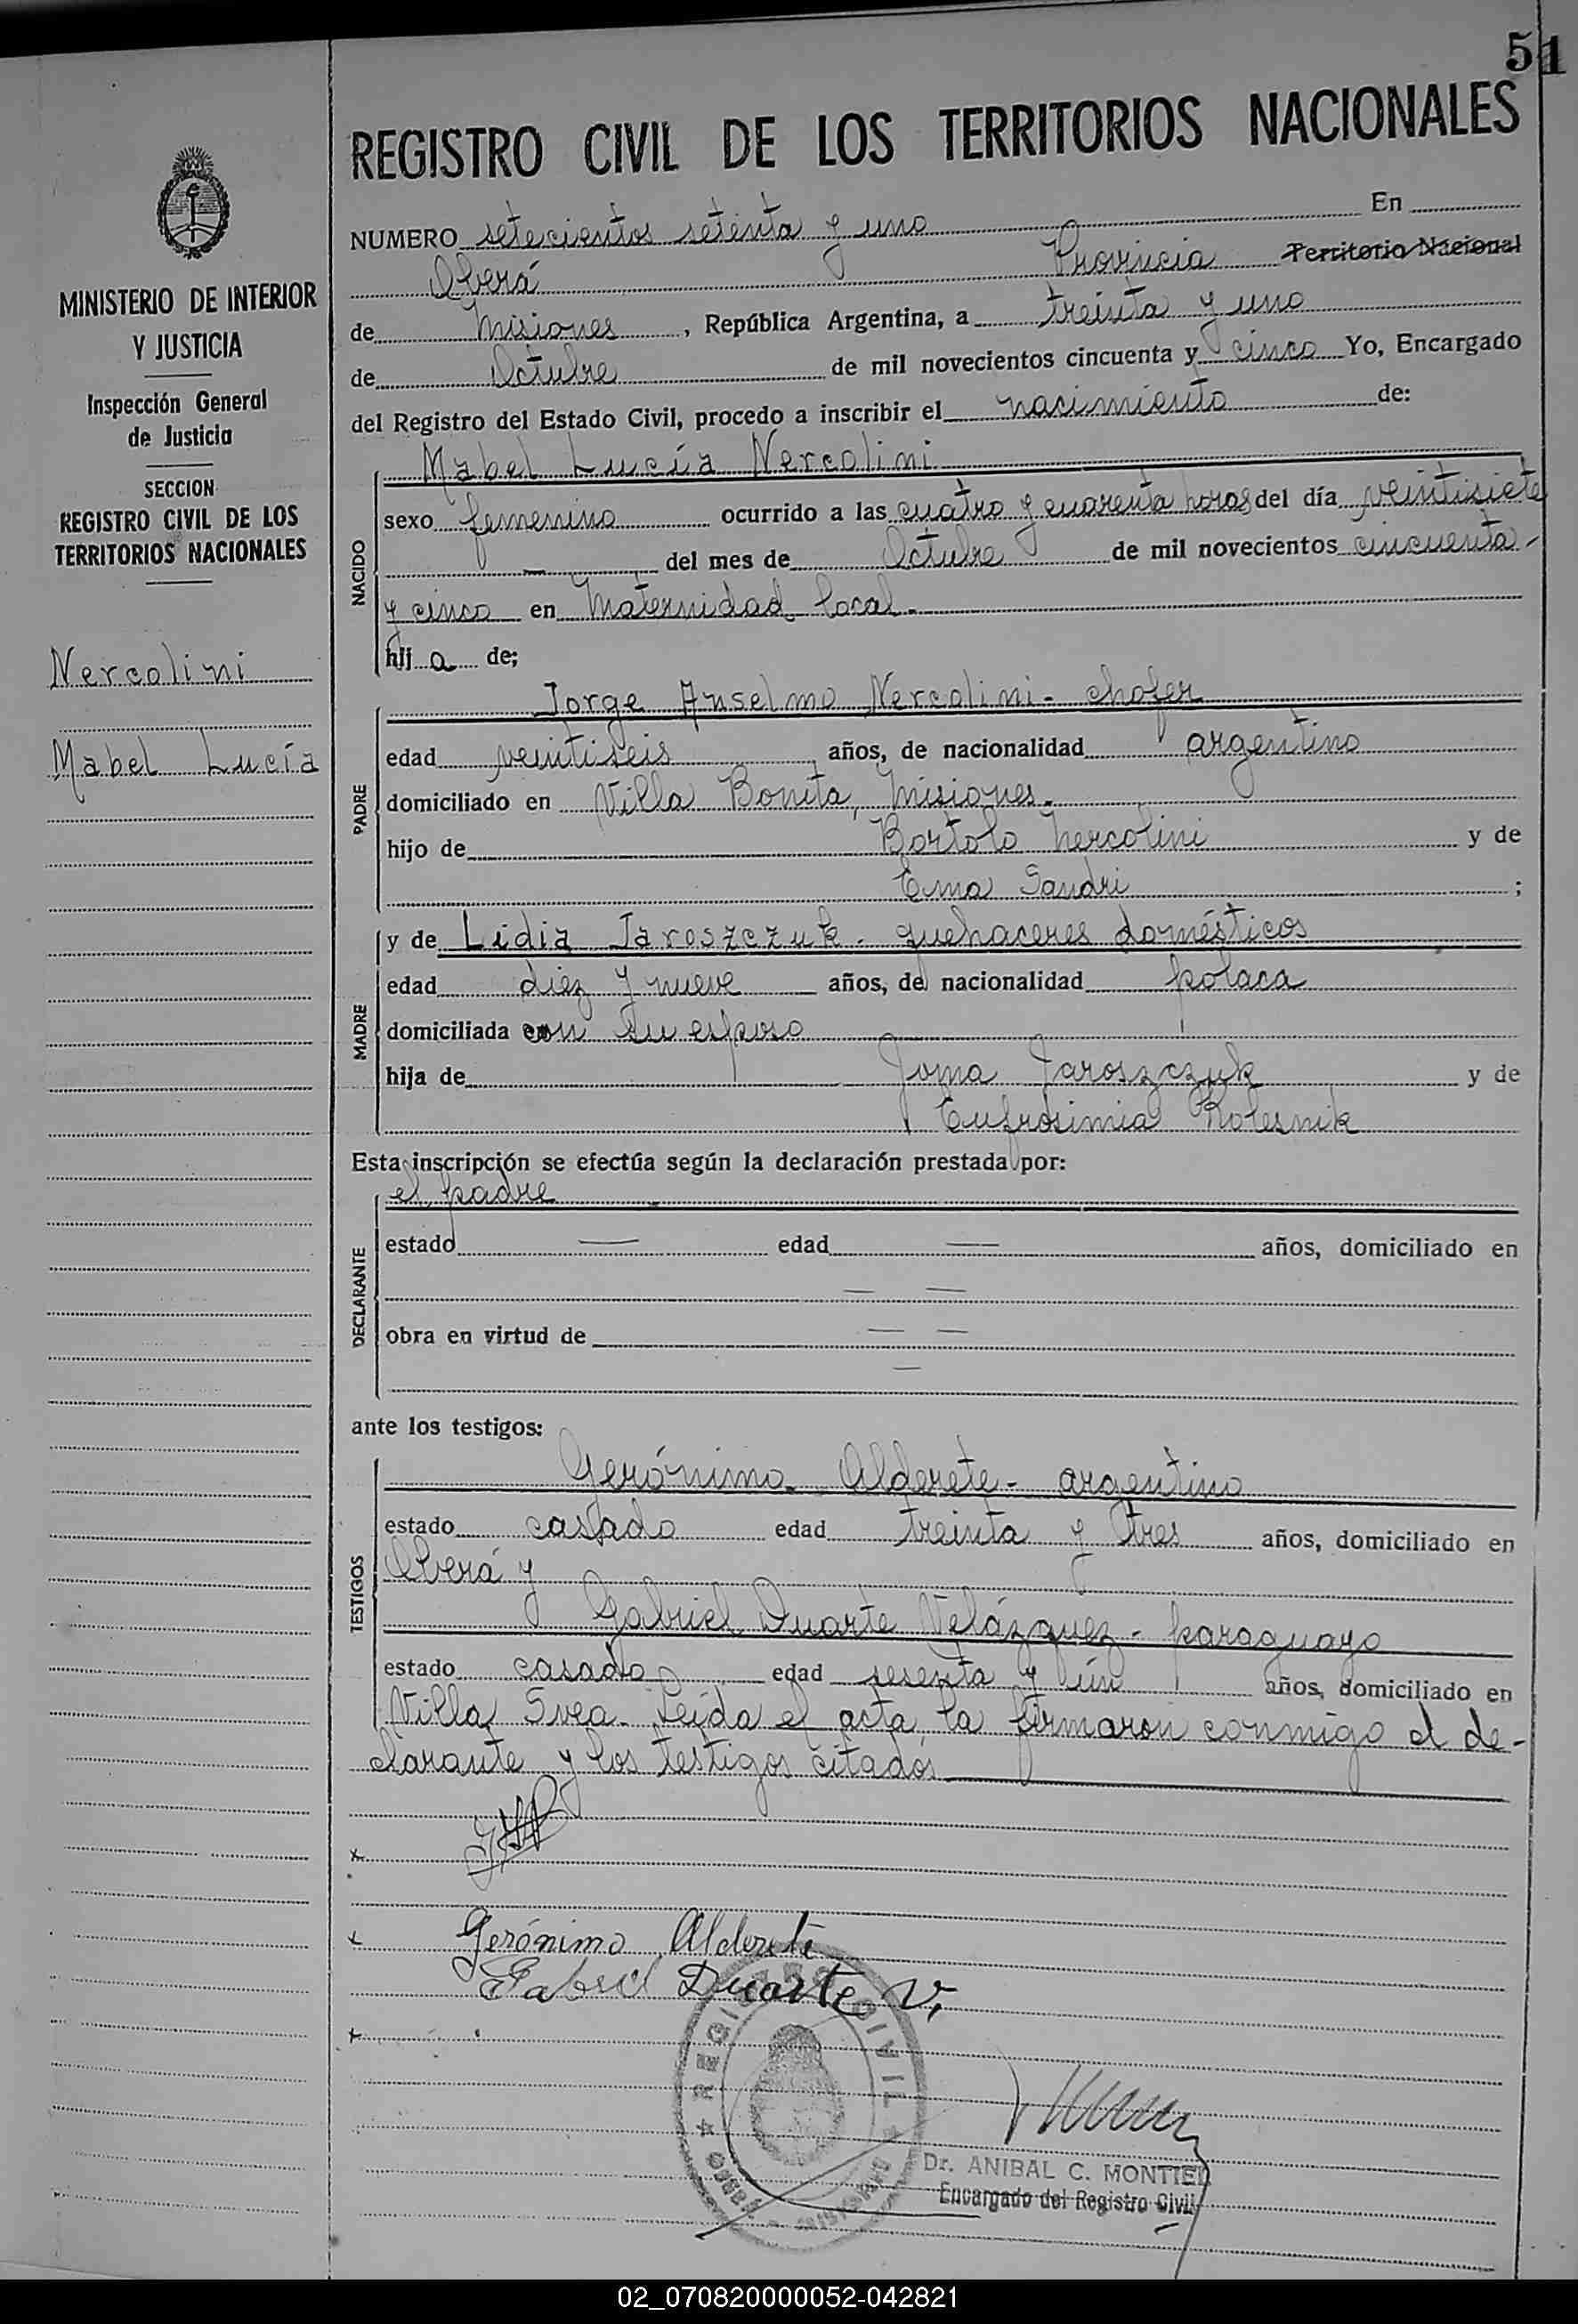 51
REGISTRO CIVIL DE LOS TERRITORIOS NACIONALES
MINISTERIO DE INTERIOR
Y JUSTICIA
Inspección General
de Justicia
SECCION
REGISTRO CIVIL DE LOS
TERRITORIOS NACIONALES
Nercolini
Mabel Lucía
NUMERO setecientos setenta y uno En
Oberá Provincia Territorio Nacional
de Misiones, República Argentina, a treinta y uno
de Octubre de mil novecientos cincuenta y cinco Yo, Encargado
del Registro del Estado Civil, procedo a inscribir el nacimiento de:
NACIDO
Mabel Lucía Nercolini
sexo femenino ocurrido a las cuatro y cuarenta horas del día veintisiete
— del mes de Octubre de mil novecientos cincuenta
y cinco en Maternidad local.
hij a de;
PADRE
Jorge Anselmo Nercolini - chofer
edad veintiseis años, de nacionalidad argentino
domiciliado en Villa Bonita, Misiones.
hijo de Bortolo Nercolini y de
Ema Sandri ;
MADRE
y de Lidia Jaroszczuk - quehaceres domésticos
edad diez y nueve años, de nacionalidad polaca
domiciliada con su esposo
hija de Joma Jaroszczuk y de
Eufrosimia Kolesnik
Esta inscripción se efectúa según la declaración prestada por:
DECLARANTE
el padre
estado — edad — años, domiciliado en
— —
obra en virtud de — —
—
ante los testigos:
TESTIGOS
Gerónimo Alderete - argentino
estado casado edad treinta y tres años, domiciliado en
Oberá y
Gabriel Duarte Velázquez - paraguayo
estado casado edad sesenta y un años, domiciliado en
Villa Svea. Leída el acta la firmaron conmigo el de-
clarante y los testigos citados
x
x Gerónimo Alderete
Gabriel Duarte V.
x
REGISTRO CIVIL
Dr. ANIBAL C. MONTIEL
Encargado del Registro Civil
02_070820000052-042821